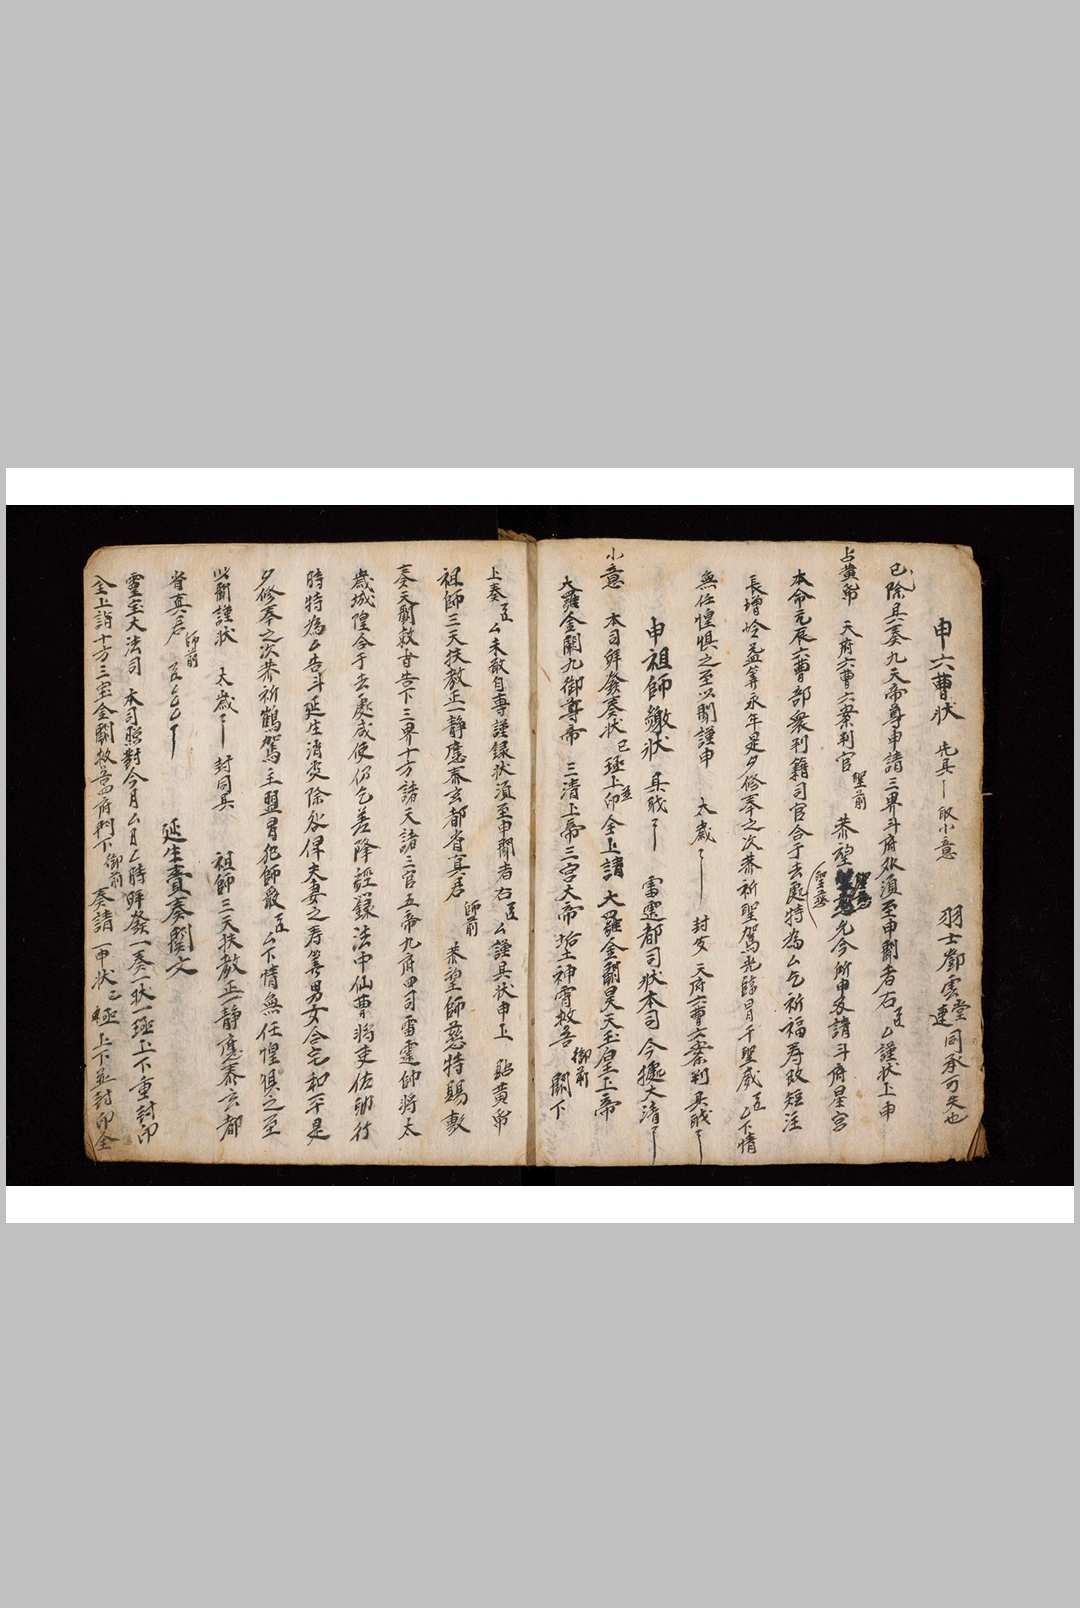 申六曹状 先具 取小意 羽士鄧雲堂連同承可失也
已除具奏九天帝尊申請三界斗府外須至申聞者右 臣厶謹状上申
占黄帋 天府六曹六案判官 聖前 恭望聖慈允今所申發請斗府星宮
本命元辰六曹部衆判籍司官合于去處特為厶乞祈福壽改短注
長增岭益筭永年是夕修奉之次恭祈聖駕光臨冒干聖威 臣厶下情
無任惶惧之至以聞謹申 太歲 封皮 天府六曹六案判 具職
申祖師繳状 具職 雷霆都司状本司 今據大清
小意 本司鮮發奏状 已 極上印 全上請 大羅金闕昊天玉皇上帝
大羅金闕九御尊帝 三清上帝三宮大帝垢土神霄救苦 御前 闕下
上奏 臣厶未敢自專謹録状須至申聞者右 臣厶謹具状申上 貼黄帋
祖師三天扶教正一静應泰玄都省真君 師前 恭望師慈特賜敷
奏天闕救苦告下三界十方諸天諸三官五帝九府四司雷霆帥將太
歲城隍合于去處咸使仍乞差降經籙法中仙曹將吏佐翊行
時特為厶告斗延生消灾除咎俾夫妻之壽筭男女合宅和平是
夕修奉之次恭祈鶴駕主盟冒犯師嚴 臣厶下情無任惶惧之至
以聞謹状 太歲 封同具 祖師三天扶教正一静應泰玄都
省真君 師前 臣厶厶
延生賫奏関文
靈宝大法司 本司照對今月厶日厶時鮮發一奏一状一極上下重封印
全上詣十方三宝金闕救苦四府門下 御前 奏請 一申状二極上下並封印全